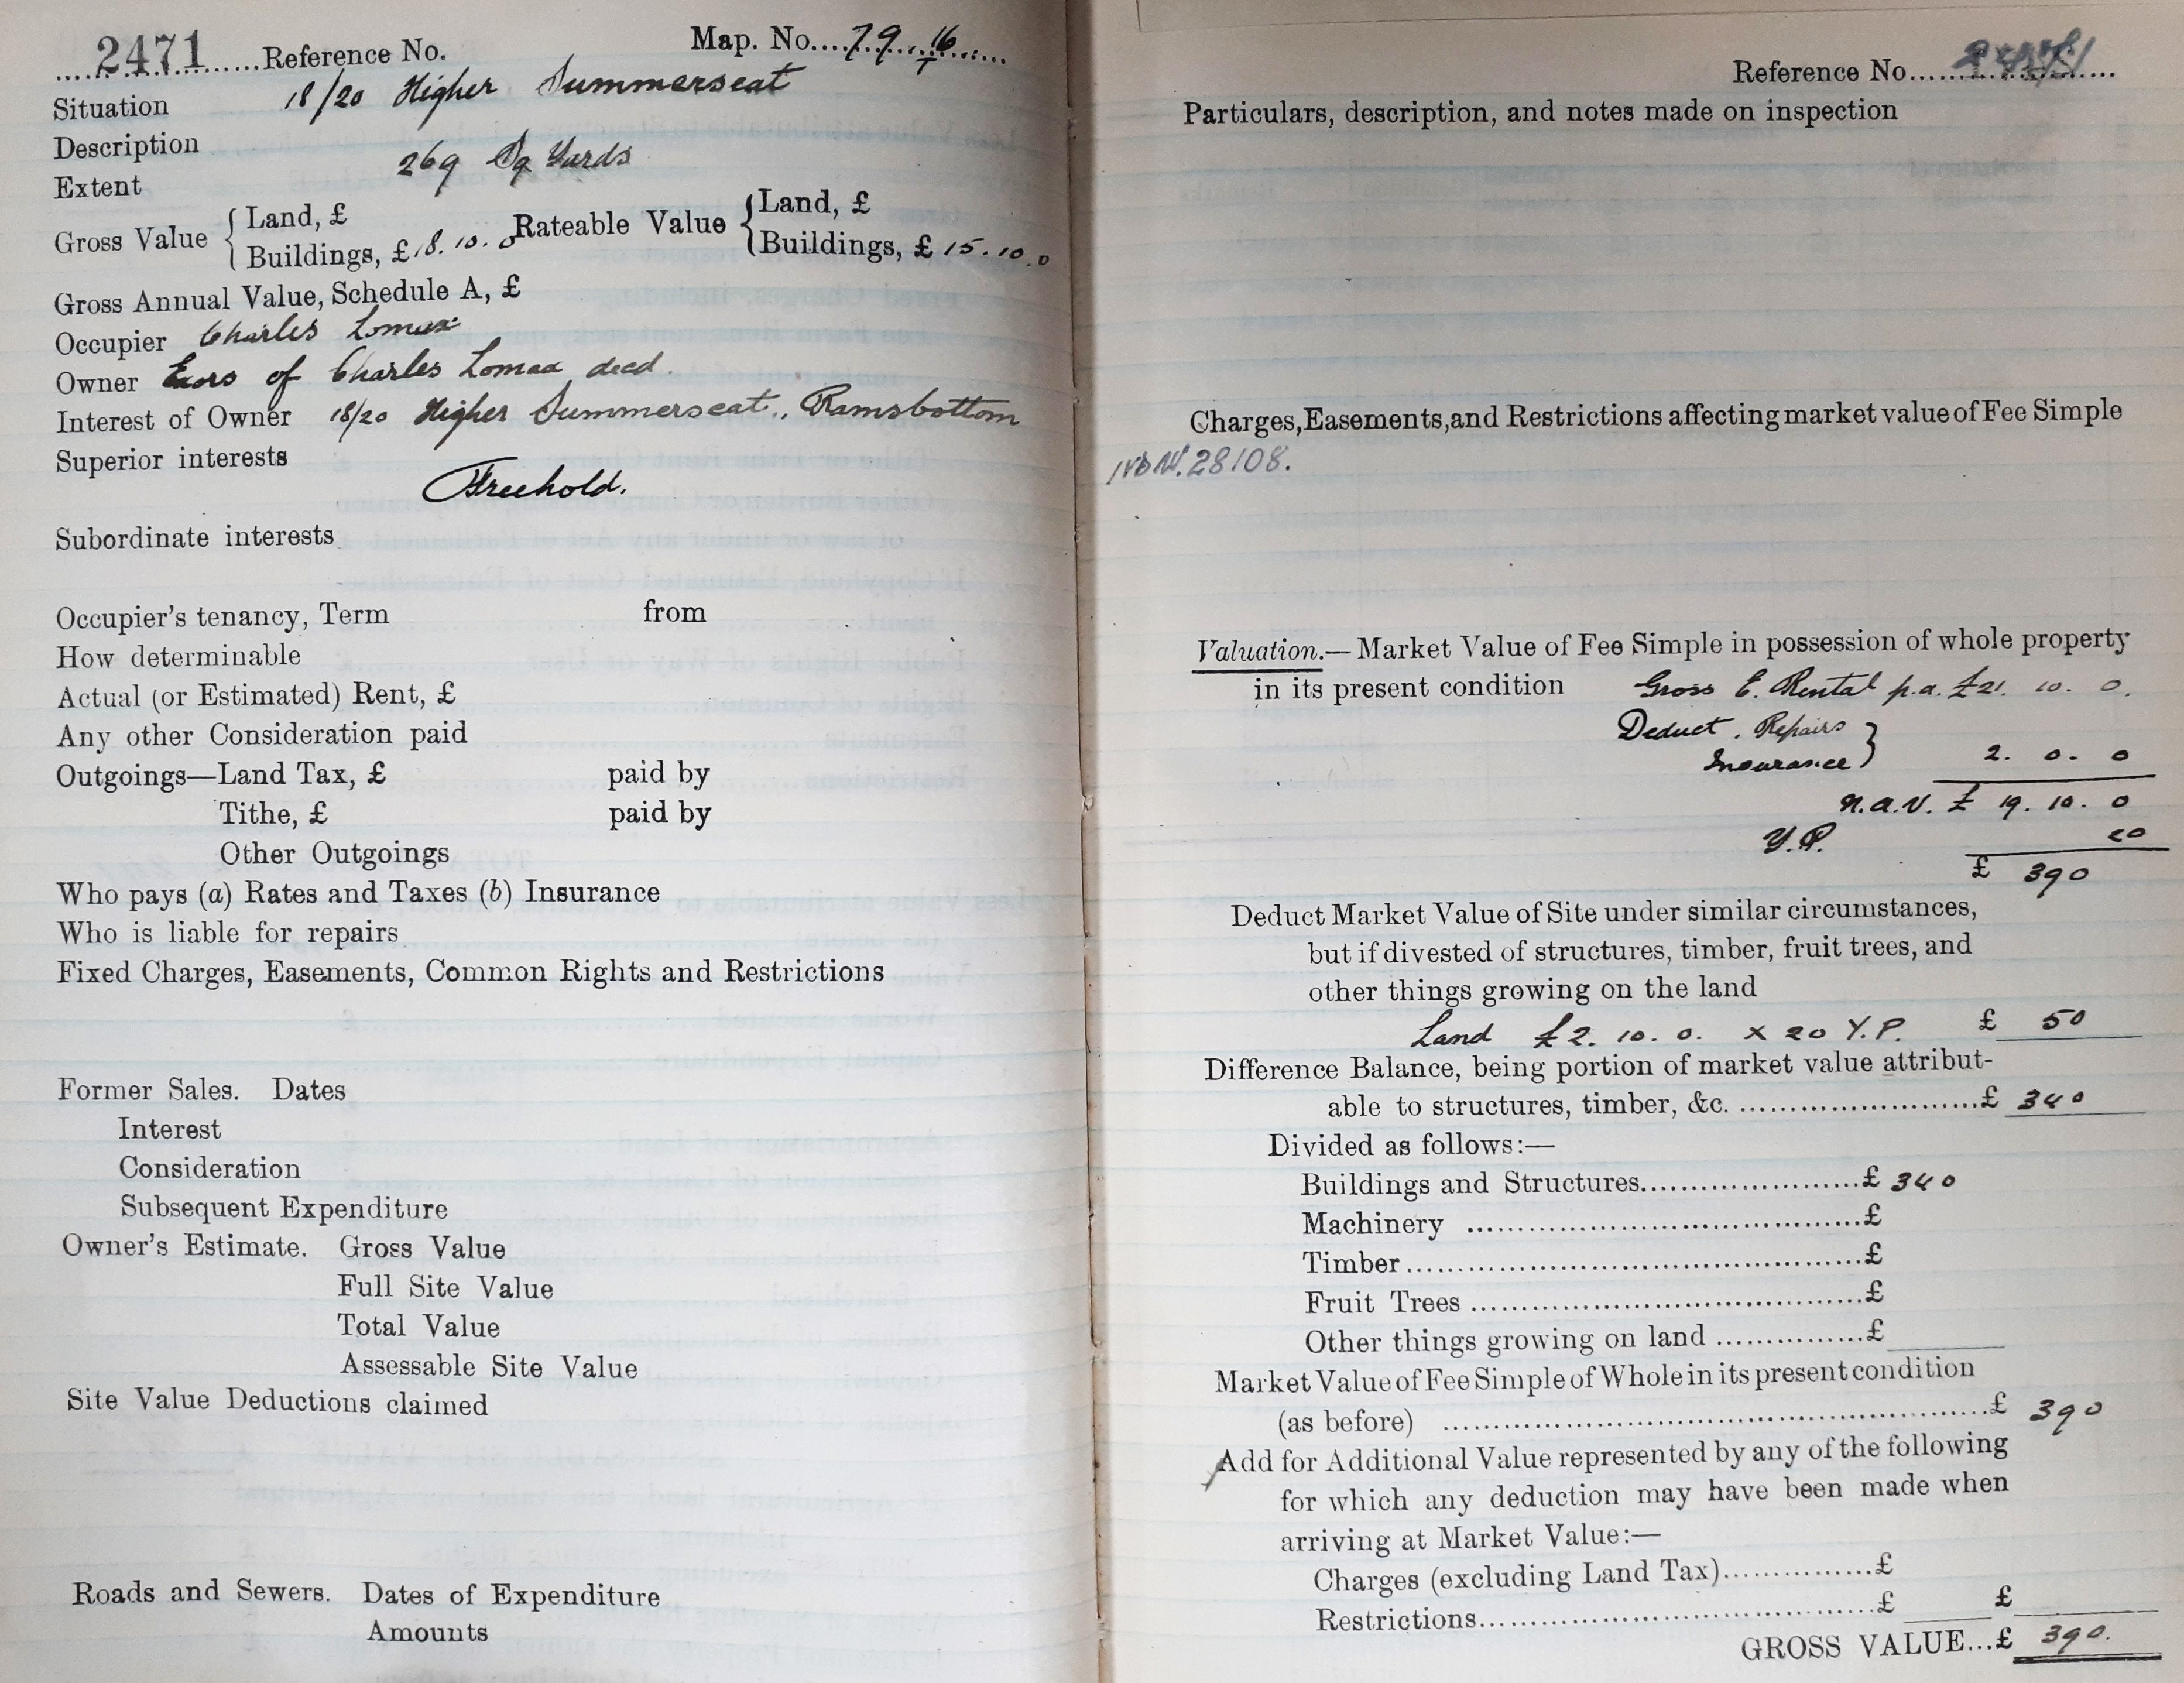 2471 Reference No. Map. No. 79.16
Situation 18/20 Higher Summerseat
Description
Extent 269 Sq Yards
Gross Value { Land, £ Rateable Value { Land, £
Buildings, £ 18.10.0 Buildings, £ 15.10.0
Gross Annual Value, Schedule A, £
Occupier Charles Lomax
Owner Exors of Charles Lomax decd.
Interest of Owner 18/20 Higher Summerseat, Ramsbottom
Superior interests
Freehold.
Subordinate interests
Occupier's tenancy, Term from
How determinable
Actual (or Estimated) Rent, £
Any other Consideration paid
Outgoings—Land Tax, £ paid by
Tithe, £ paid by
Other Outgoings
Who pays (a) Rates and Taxes (b) Insurance
Who is liable for repairs
Fixed Charges, Easements, Common Rights and Restrictions
Former Sales. Dates
Interest
Consideration
Subsequent Expenditure
Owner's Estimate. Gross Value
Full Site Value
Total Value
Assessable Site Value
Site Value Deductions claimed
Roads and Sewers. Dates of Expenditure
Amounts
Reference No.
Particulars, description, and notes made on inspection
Charges, Easements, and Restrictions affecting market value of Fee Simple
28108.
Valuation.— Market Value of Fee Simple in possession of whole property
in its present condition Gross E. Rental p.a. £21. 10. 0.
Deduct, Repairs
Insurance } 2. 0. 0
N.A.V. £ 19. 10. 0
Y.P. 20
£ 390
Deduct Market Value of Site under similar circumstances,
but if divested of structures, timber, fruit trees, and
other things growing on the land
Land £2. 10. 0. x 20 Y.P. £ 50
Difference Balance, being portion of market value attribut-
able to structures, timber, &c. £ 340
Divided as follows:—
Buildings and Structures £ 340
Machinery £
Timber £
Fruit Trees £
Other things growing on land £
Market Value of Fee Simple of Whole in its present condition
(as before) £ 390
Add for Additional Value represented by any of the following
for which any deduction may have been made when
arriving at Market Value:—
Charges (excluding Land Tax) £
Restrictions £ £
GROSS VALUE...£ 390.